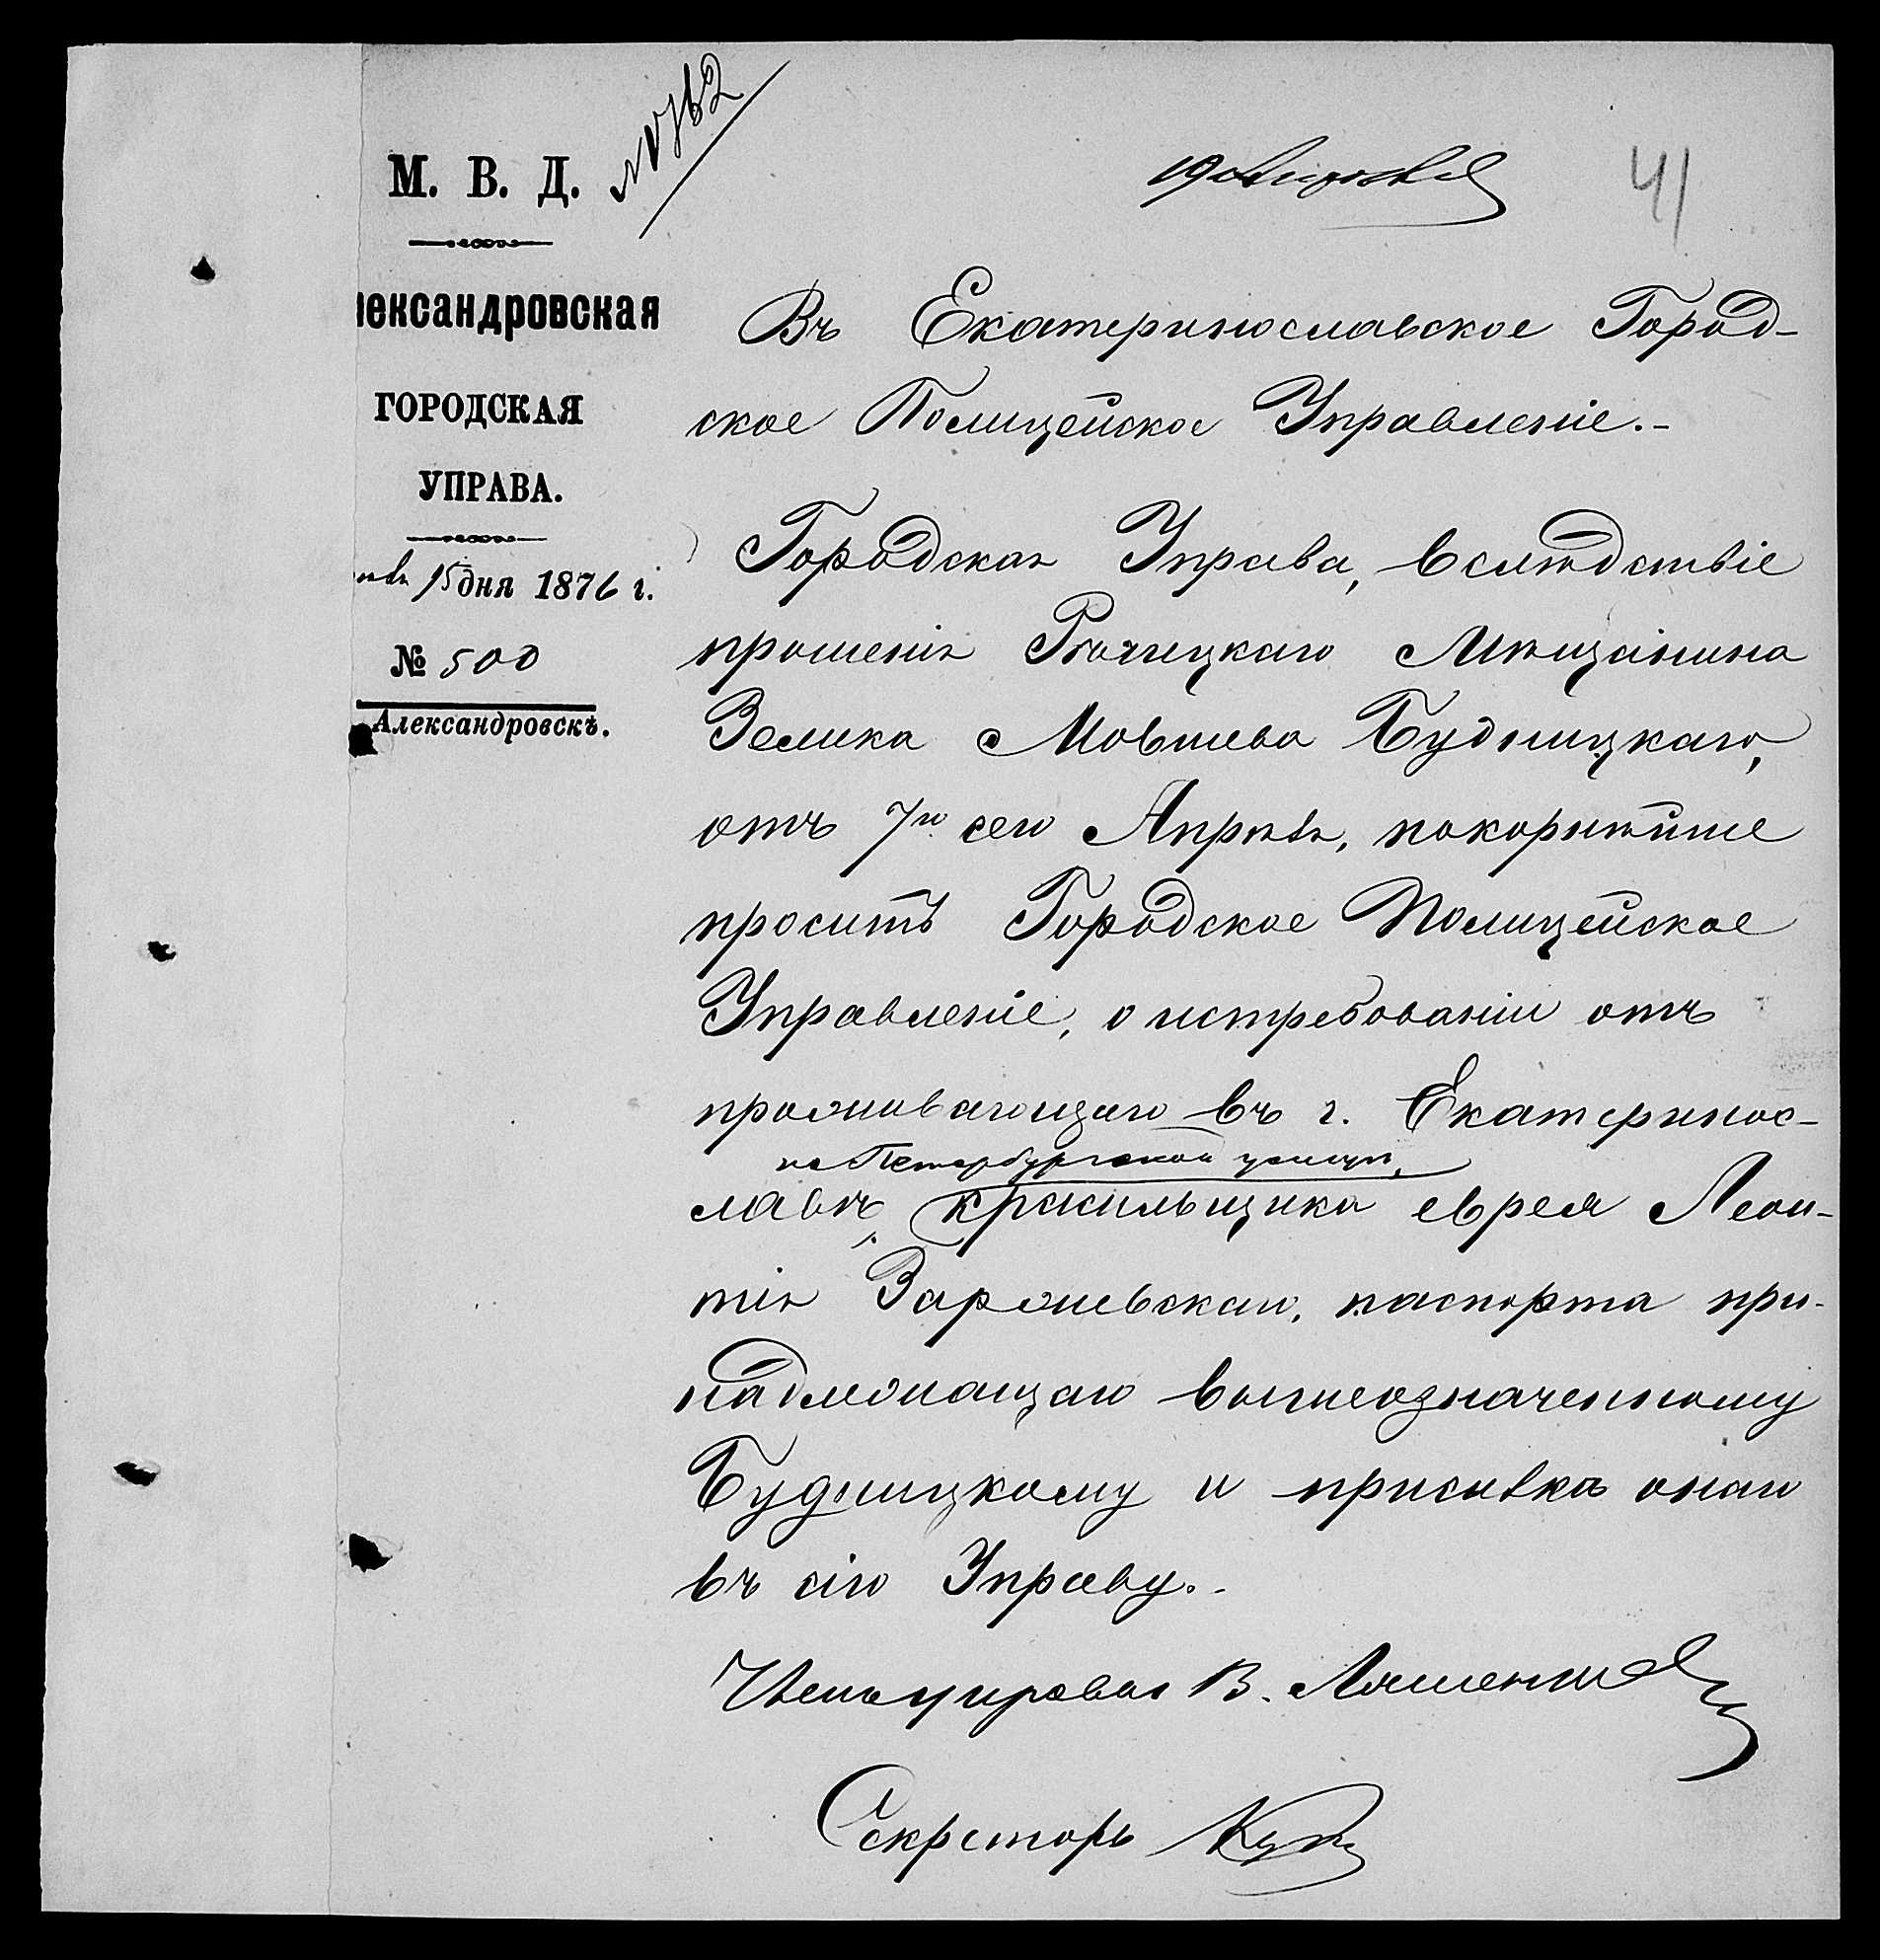 № 762
41
М. В. Д.
лександровская
ГОРОДСКАЯ
УПРАВА.
15 дня 1876 г.
№ 500
Александровскъ.
Въ Екатеринославское Город-
ское Полицейское Управленіе.-
Городская Управа, вслѣдствіе
прошенія Рѣчицкаго Мѣщанина
Зелика Мовшева Будницкаго,
отъ 7го сего Апрѣля, покорнѣйше
проситъ Городское Полицейское
Управленіе, о истребованіи отъ
проживающаго въ г. Екатеринос-
на Петербургской улицѣ,
лавѣ, красильщика еврея Леон-
тія Заржевскаго, паспорта при-
надлежащаго вышеозначенному
Будницкому и присылкѣ онаго
въ сію Управу.-
В. Ляшенко
Секретарь